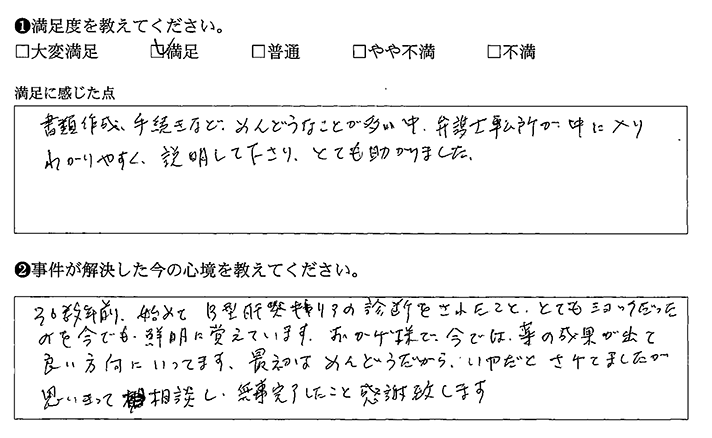 ❶満足度を教えてください。
□大変満足 ☑満足 □普通 □やや不満 □不満
満足に感じた点
書類作成、手続きなど、めんどうなことが多い中、弁護士事ム所が、中に入り
わかりやすく、説明して下さり、とても助かりました。
❷事件が解決した今の心境を教えてください。
30数年前、始めてB型肝炎キャリアの診断をされたこと、とてもショックだった
のを今でも、鮮明に覚えています。おかげ様で、今では、薬の成果が出て
良い方向にいってます。最初はめんどうだから、いやだとさけてましたが
思いきって相談し、無事完了したこと感謝致します